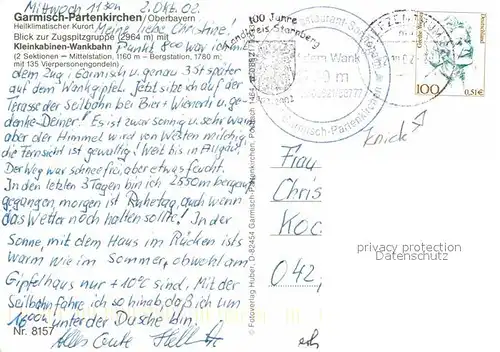 Mittwoch 11 30h 2. Okt. 02
Garmisch-Partenkirchen / Oberbayern
Heilklimatischer Kurort
Meine liebe Christine!
Blick zur Zugspitzgruppe (2964 m) mit
Kleinkabinen-Wankbahn
Punkt 8 00 war ich mit
(2 Sektionen – Mittelstation, 1160 m – Bergstation, 1780 m;
mit 135 Vierpersonengondeln)
dem Zug i. Garmisch u. genau 3 St später
auf dem Wankgipfel. Jetzt sitze ich auf der
Terasse der Seilbahn bei Bier + Wienerli u. ge-
denke Deiner! Es ist zwar sonnig u. sehr warm
aber der Himmel wird von Westen milchig
die Fernsicht ist gewaltig! Weit bis in Allgäu!
Der Weg war schneefrei, aber etwas feucht.
In den letzten 3 Tagen bin ich 2550m bergauf
gegangen, morgen ist Ruhetag, auch wenn
das Wetter noch halten sollte! In der
Sonne, mit dem Haus im Rücken ists
warm wie im Sommer, obwohl am
Gipfelhaus nur +10°C sind. Mit der
Seilbahn fahre ich so hinab, daß ich um
16 00h unter der Dusche bin.
Nr. 8157
Alles Gute
© Fotoverlag Huber, D-82454 Garmisch-Partenkirchen,
100 Jahre
Landkreis Starnberg
dem Wank
Garmisch-Partenkirchen
BRIEFZENTRUM
Deutschland
100
0,51€
Knick
Frau
Chris
Koc
042,
privacy protection
Datenschutz